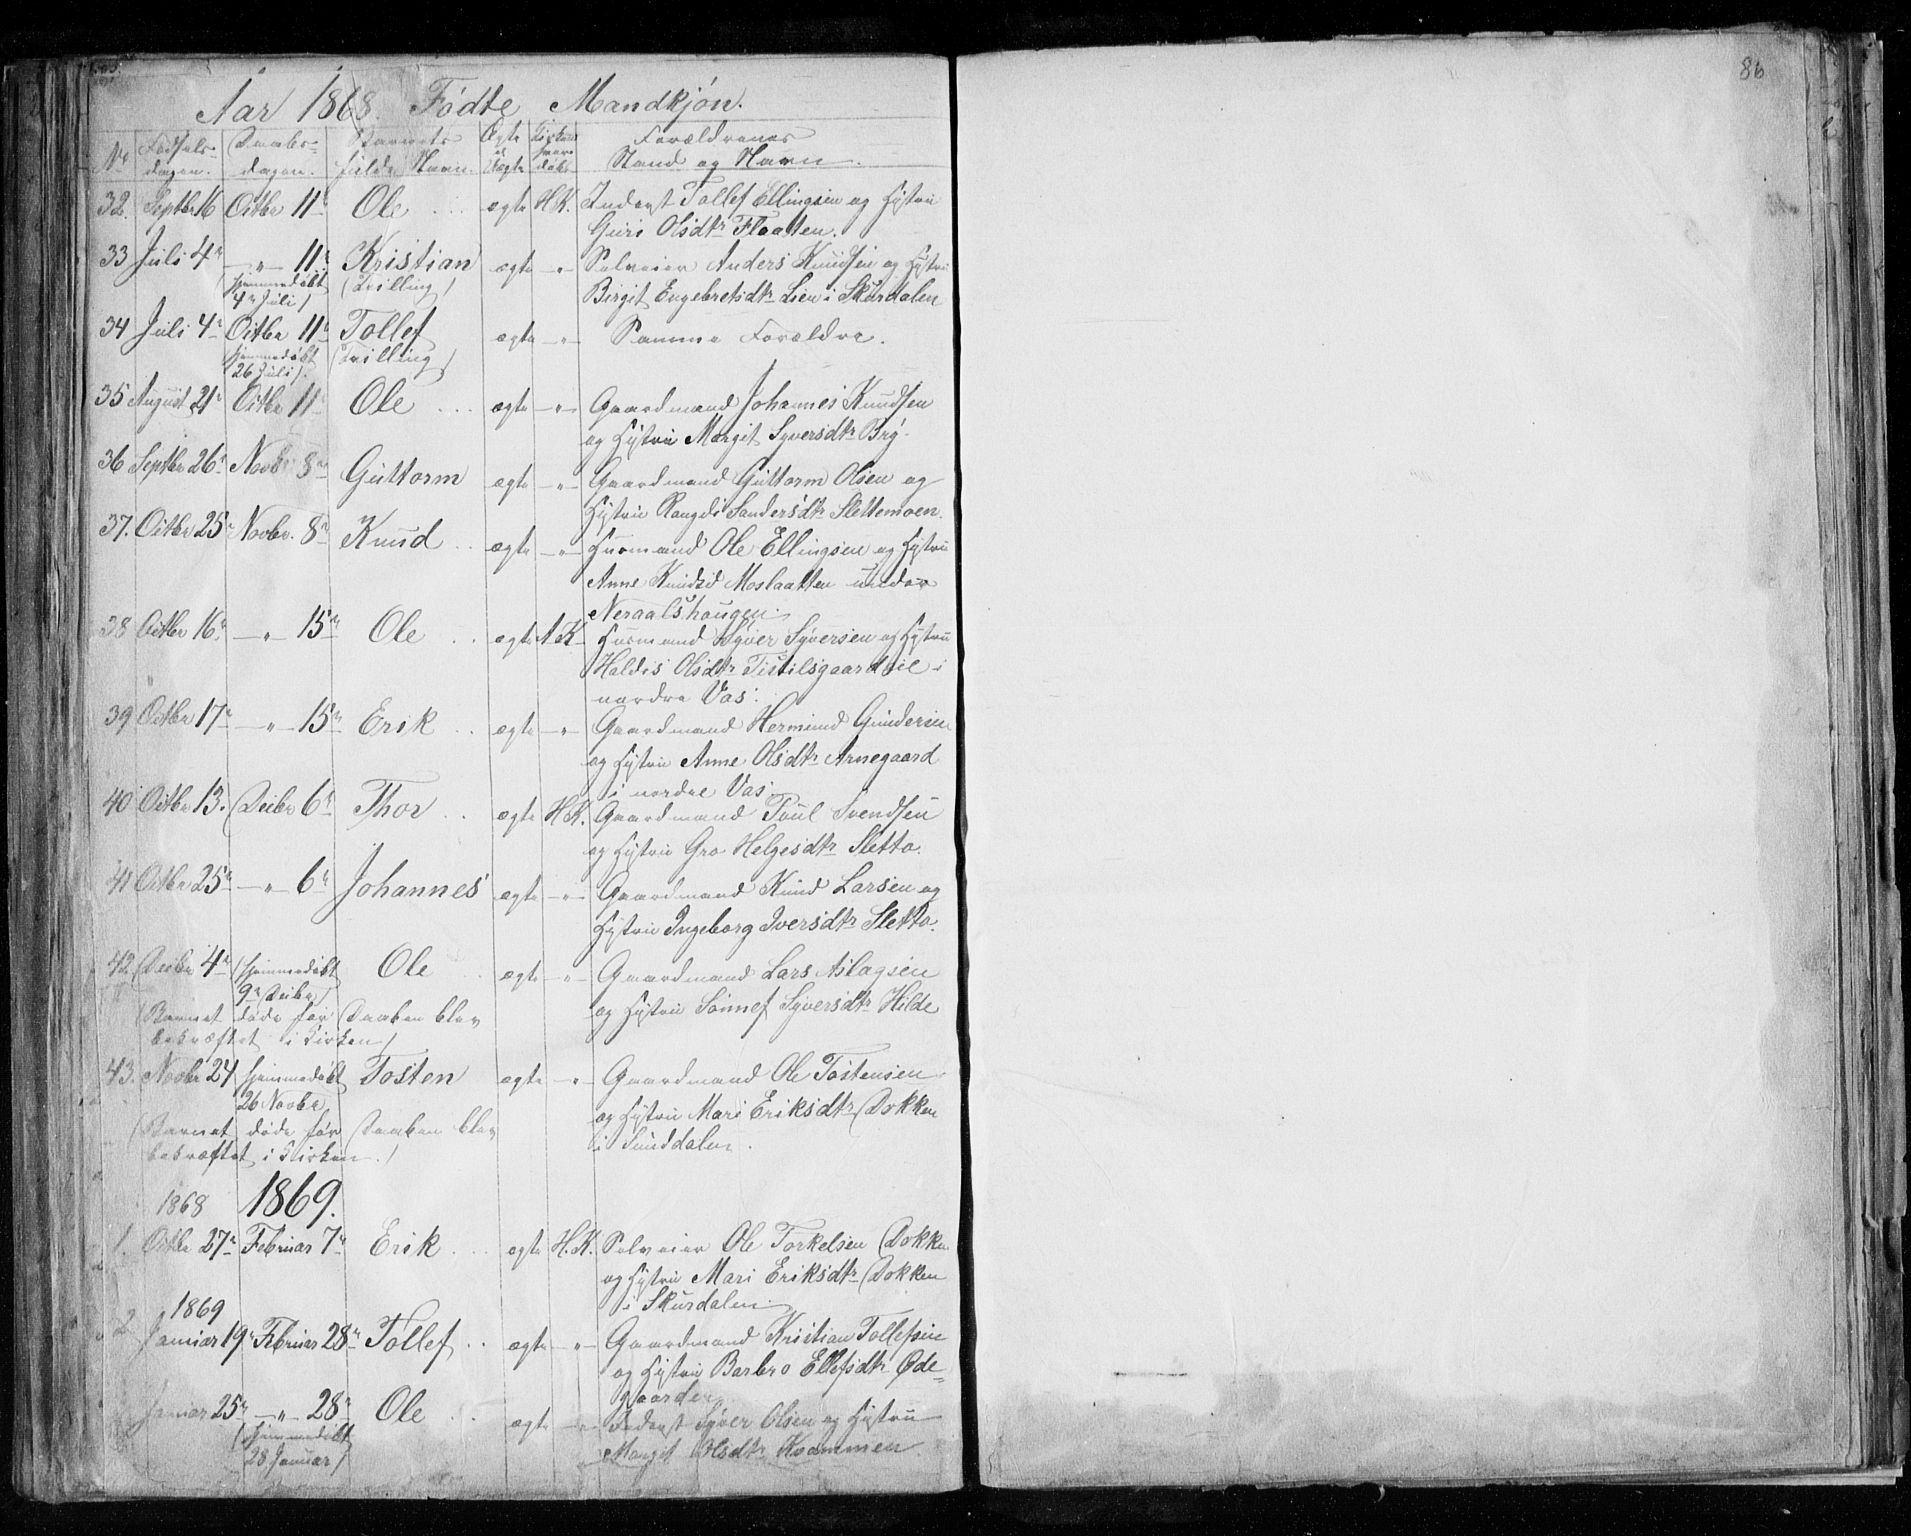 86
Aar 1868. Fødte Mandkjøn.
No Fødselsdagen. Daabsdagen. Barnets fulde Navn. Ægte el. Uægte Forældrenes Stand og Navn.
32. Septbr 16 Octbr 11te Ole ægte H.K. Inderst Tollef Ellingsen og Hustru
Guri Olsdtr Flaaten.
33 Juli 4de — " — 11te Kristian ægte — " — Selveier Anders Knudsen og Hustru
(Hjemmedøbt (Trilling)
4de Juli) Birgit Engebretsdtr Lien i Skurdalen
34 Juli 4de Octbr 11te Tollef ægte — " — Samme Forældre.
(Hjemmedøbt (Trilling)
26 Juli)
35 August 21de Octbr 11te Ole ægte — " — Gaardmand Johannes Knudsen
og Hustru Margit Syversdtr Bry.
36 Septbr 26de Novbr 8de Guttorm ægte — " — Gaardmand Guttorm Olsen og
Hustru Rangdi Sandersdtr Slettemoen.
37. Octbr 25de Novbr. 8de Knud ægte — " — Husmand Ole Ellingsen og Hustru
Anne Knudsd Moslaatten under
Neraalshaugen.
38 Octbr 16de — " — 15de Ole ægte A K Husmand Syver Syversen og Hustru
Haldis Olsdtr Tistilsgaardeie i
nordre Vas.
39 Octbr 17de — " — 15de Erik ægte — " — Gaardmand Hermund Gundersen
og Hustru Anne Olsdtr Arnegaard
i nordre Vas.
40 Octbr 13. Decbr 6te Thor ægte H.K. Gaardmand Poul Svendsen
og Hustru Gro Helgesdtr Sletto.
41 Octbr 25de — " — 6te Johannes ægte — " — Gaardmand Knud Larsen og
Hustru Ingeborg Iversdtr Sletto.
42. Decbr 4de (Hjemmedøbt Ole ægte — " — Gaardmand Lars Aslagsen
9de Decbr) og Hustru Sønnef Syversdtr Hilde
(Barnet døde før Daaben blev
bekræftet i Kirken)
43. Novbr 24 Hjemmedøbt Tosten ægte — " — Gaardmand Ole Tostensen
26 Novbr og Hustru Mari Eriksdtr Dokken
(Barnet døde før Daaben blev
bekræftet i Kirken.) i Sunddalen.
1868 1869.
1. Octbr 27de Februar 7de Erik ægte H.K. Selveier Ole Torkelsen Dokken
og Hustru Mari Eriksdtr Dokken
i Skurdalen.
1869
2 Januar 19de Februar 28de Tollef ægte — " — Gaardmand Kristian Tollefsen
og Hustru Barbro Ellefsdtr Øde-
gaarden
Januar 25de — " — 28de Ole ægte — " — Inderst Syver Olsen og Hustru
(Hjemmedøbt
28 Januar) Marget Olsdtr Kvammen